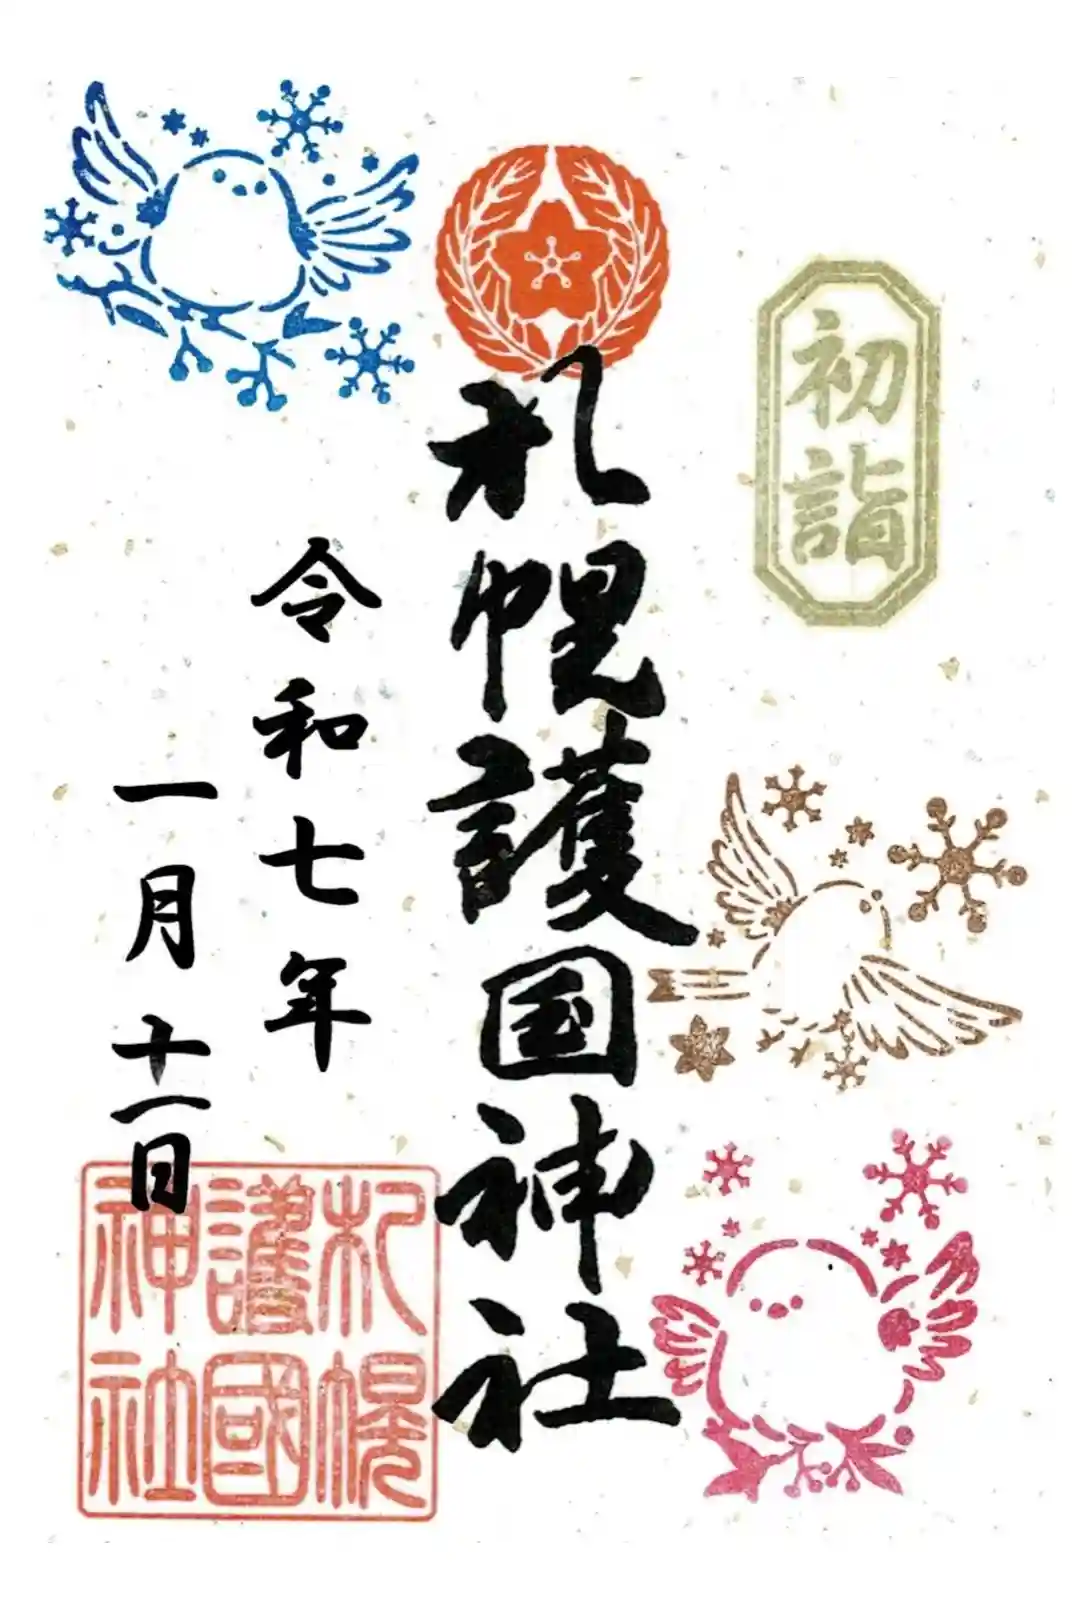 初詣
札幌護国神社
令和七年
一月十一日
札幌
護國
神社